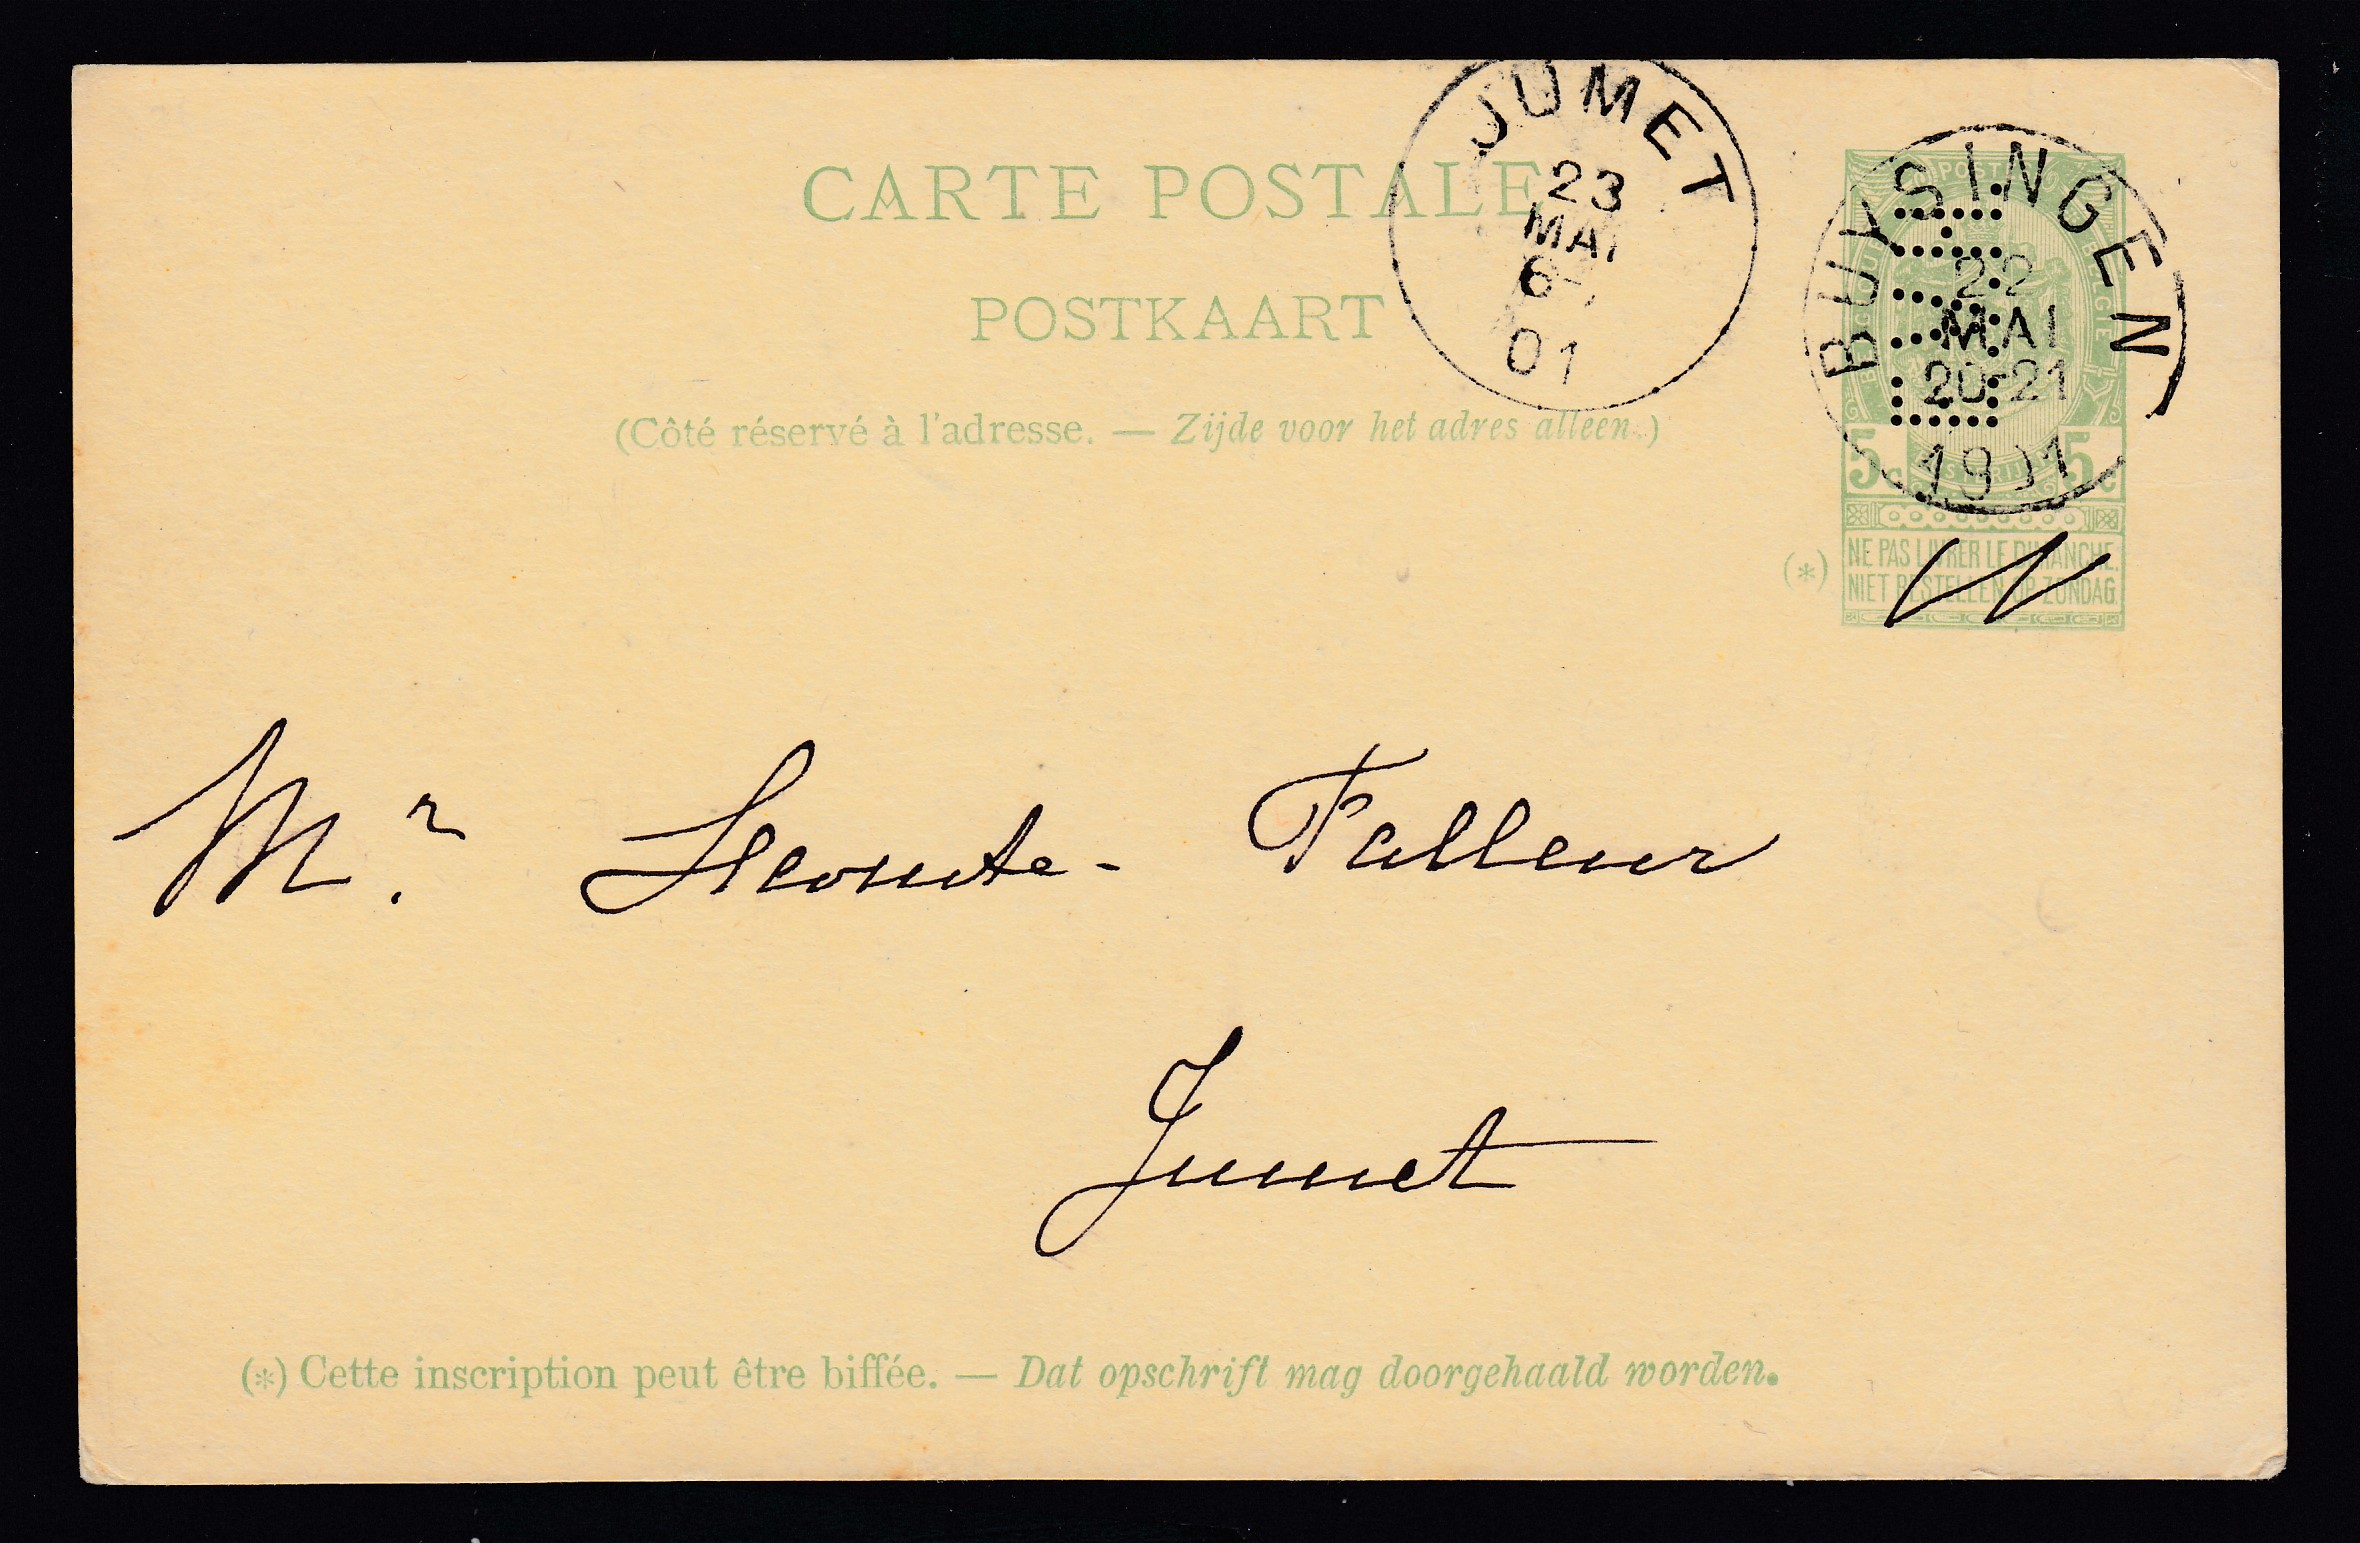 CARTE POSTALE
POSTKAART
(Côté réservé à l'adresse. — Zijde voor het adres alleen.)
JUMET
23
MAI
6
01
BUYSINGEN
22
MAI
20-21
1901
POSTES
BELGIE
5c 5c
(*)
NE PAS LIVRER LE DIMANCHE.
NIET BESTELLEN OP ZONDAG.
Mr. Lecomte-Falleur
Jumet
(*) Cette inscription peut être biffée. — Dat opschrift mag doorgehaald worden.